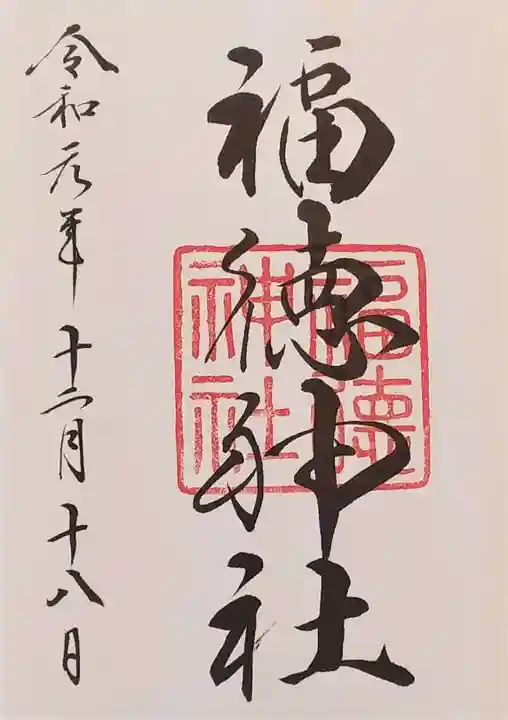 福徳神社
福徳
神社
令和元年十二月十八日